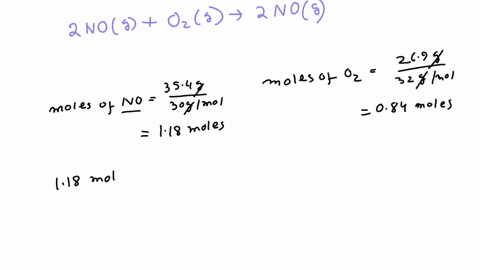 2NO(g) + O₂(g) → 2NO(g)
moles of NO = 35.4g / 30g/mol
= 1.18 moles
moles of O₂ = 26.9g / 32g/mol
= 0.84 moles
1.18 mol